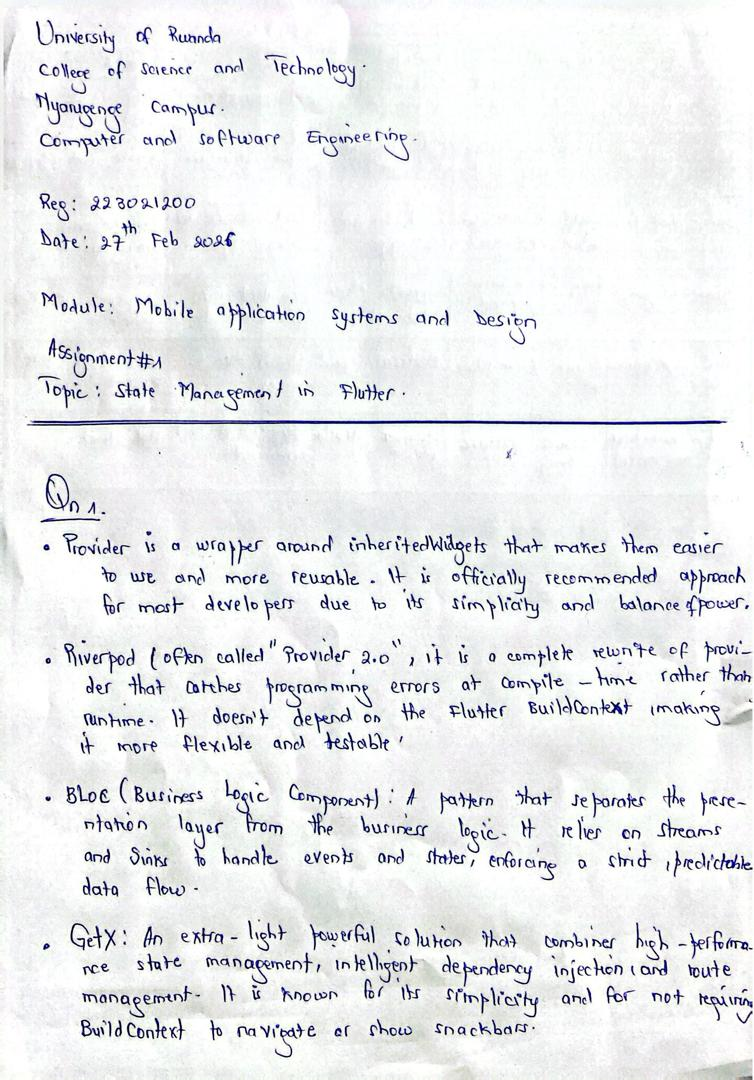 University of Rwanda
College of science and Technology.
Nyarugenge Campus.
Computer and software Engineering.
Reg: 223021200
Date: 27th Feb 2026
Module: Mobile application systems and Design
Assignment#1
Topic: State Management in Flutter.
Qn 1.
• Provider is a wrapper around inheritedWidgets that makes them easier
to use and more reusable. It is officially recommended approach
for most developers due to its simplicity and balance of power.
• Riverpod (often called "Provider 2.0", it is a complete rewrite of provi-
der that catches programming errors at compile-time rather than
runtime. It doesn't depend on the Flutter BuildContext, making
it more flexible and testable.
• BLoC (Business Logic Component): A pattern that separates the prese-
ntation layer from the business logic. It relies on streams
and Sinks to handle events and states, enforcing a strict, predictable
data flow.
• GetX: An extra-light powerful solution that combines high-performa-
nce state management, intelligent dependency injection, and route
management. It is known for its simplicity and for not requiring
BuildContext to navigate or show snackbars.